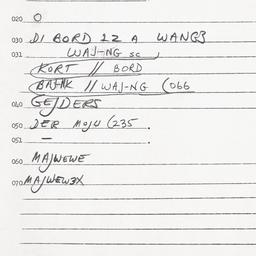 020 O
030 DI BORD 12 A WANG3
031 WAJ-NG sc
KORT // BORD
BNHK // WAJ-NG (066
040 GEJDERS
050 DER MOJU (235.
051 — .
060 MAJWEWE
070 MAJWEW3X